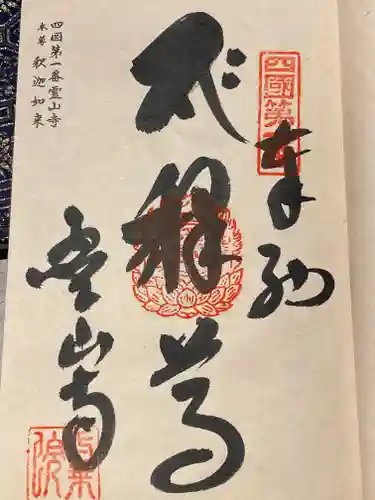 奉納
四國第一
釋尊
霊山寺
四国第一番霊山寺
本尊 釈迦如来